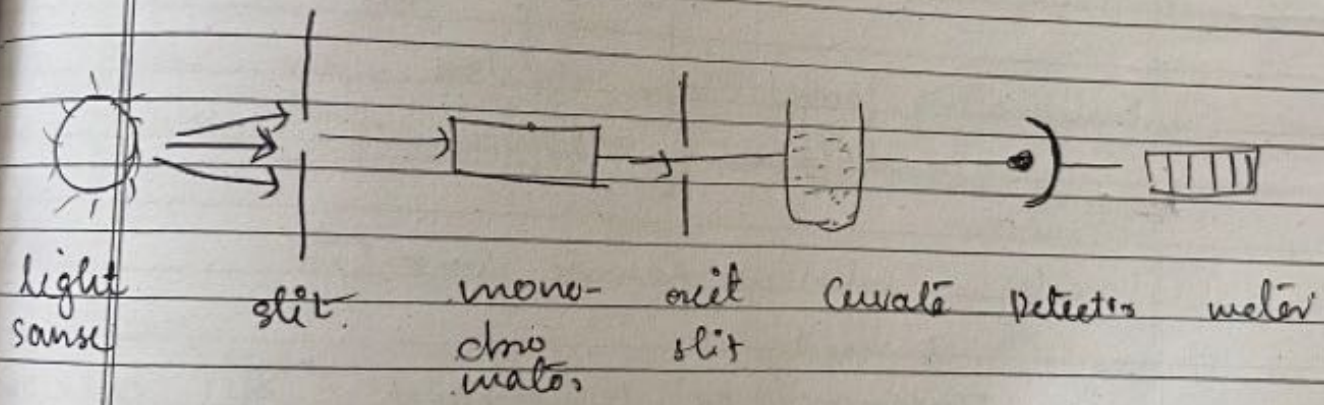 light
sanse
slit.
mono-
chro
mator
exit
slit
Cuvatē
Detector
meter